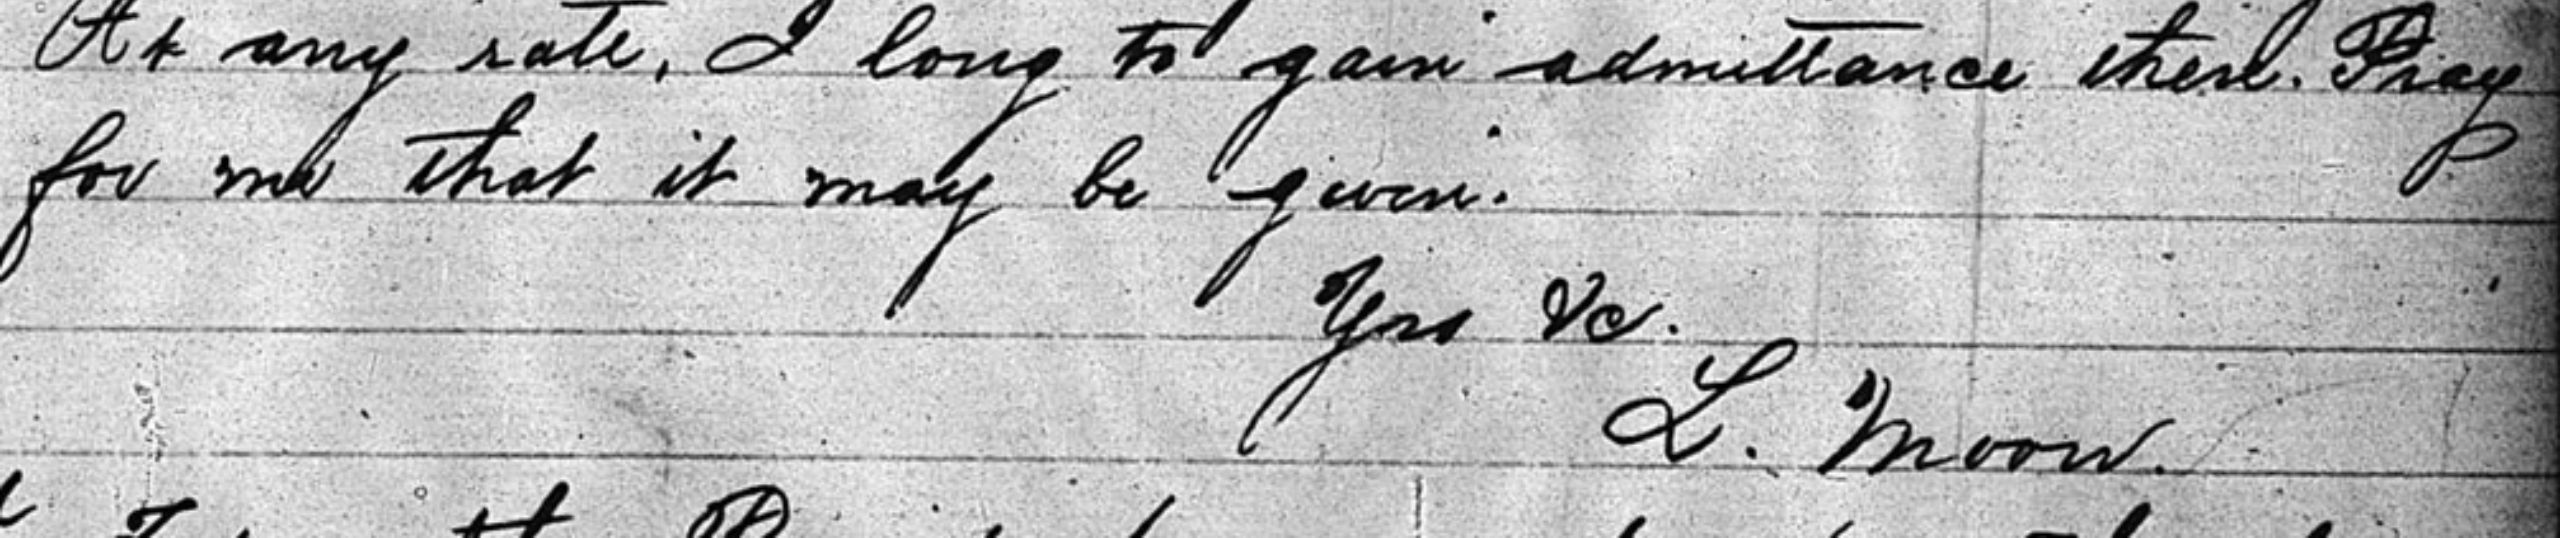 At any rate, I long to gain admittance there. Pray
for me that it may be given.
Yrs &c.
L. Moon.